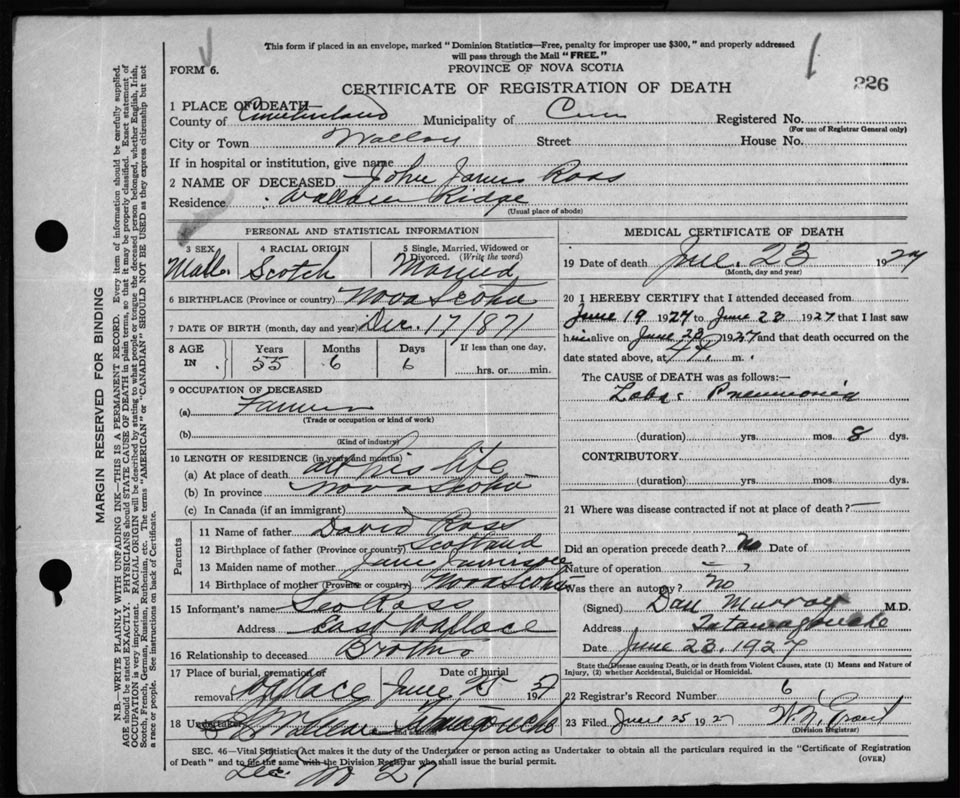 This form if placed in an envelope, marked "Dominion Statistics—Free, penalty for improper use $300," and properly addressed
will pass through the Mail "FREE."
FORM 6.
PROVINCE OF NOVA SCOTIA
226
CERTIFICATE OF REGISTRATION OF DEATH
1 PLACE OF DEATH—
County of Cumberland Municipality of Cum Registered No.
(For use of Registrar General only)
City or Town Wallace Street House No.
If in hospital or institution, give name
2 NAME OF DECEASED John James Ross
Residence Wallace Ridge
(Usual place of abode)
PERSONAL AND STATISTICAL INFORMATION
3 SEX 4 RACIAL ORIGIN 5 Single, Married, Widowed or Divorced. (Write the word)
Male. Scotch Married
6 BIRTHPLACE (Province or country) Nova Scotia
7 DATE OF BIRTH (month, day and year) Dec. 17/871
8 AGE IN Years Months Days If less than one day,
55 6 6 hrs. or min.
9 OCCUPATION OF DECEASED
(a) Farmer
(Trade or occupation or kind of work)
(b)
(Kind of industry)
10 LENGTH OF RESIDENCE (in years and months)
(a) At place of death all his life
(b) In province Nova Scotia
(c) In Canada (if an immigrant)
Parents
11 Name of father David Ross
12 Birthplace of father (Province or country) Scotland
13 Maiden name of mother Jane
14 Birthplace of mother (Province or country) Nova Scotia
15 Informant's name Geo Ross
Address East Wallace
16 Relationship to deceased Brother
17 Place of burial, cremation or removal Wallace June 25 1927
18 Undertaker
(Name and address)
MEDICAL CERTIFICATE OF DEATH
19 Date of death June. 23 1927
(Month, day and year)
20 I HEREBY CERTIFY that I attended deceased from
June 19 1927 to June 23 1927 that I last saw
him alive on June 23 1927 and that death occurred on the
date stated above, at m.
The CAUSE of DEATH was as follows:—
Lobar Pneumonia
(duration) yrs. mos. 8 dys.
CONTRIBUTORY
(duration) yrs. mos. dys.
21 Where was disease contracted if not at place of death? —
Did an operation precede death? No Date of
Nature of operation
Was there an autopsy? No
(Signed) Dan Murray M.D.
Address Tatamagouche
Date June 23. 1927
State the Disease causing Death, or in death from Violent Causes, state (1) Means and Nature of
Injury, (2) whether Accidental, Suicidal or Homicidal.
22 Registrar's Record Number 6
23 Filed June 25 1927 W. N.
(Division Registrar)
SEC. 46—Vital Statistics Act makes it the duty of the Undertaker or person acting as Undertaker to obtain all the particulars required in the "Certificate of Registration
of Death" and to file the same with the Division Registrar who shall issue the burial permit.
(OVER)
27
MARGIN RESERVED FOR BINDING
N.B.—WRITE PLAINLY WITH UNFADING INK—THIS IS A PERMANENT RECORD. Every item of information should be carefully supplied.
AGE should be stated EXACTLY. PHYSICIANS should STATE CAUSE OF DEATH in plain terms, so that it may be properly classified. Exact statement of
OCCUPATION is very important. RACIAL ORIGIN will be described by stating to what people or tongue the deceased person belonged, whether English, Irish,
Scotch, French, German, Russian, Ruthenian, etc. The terms "AMERICAN" or "CANADIAN" SHOULD NOT BE USED as they express citizenship but not
a race or people. See instructions on back of Certificate.